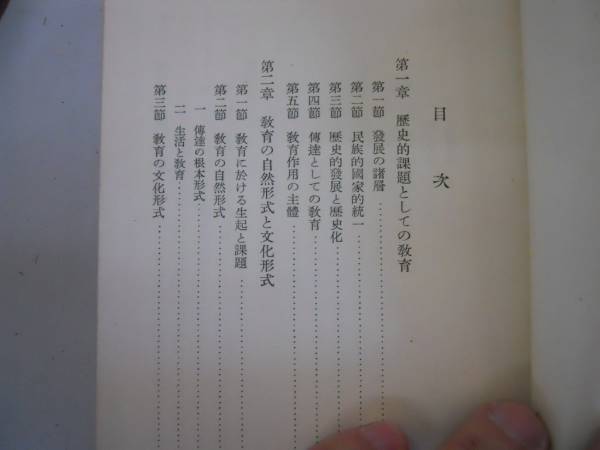 目次
第一章 歷史的課題としての敎育
第一節 發展の諸層
第二節 民族的國家的統一
第三節 歷史的發展と歷史化
第四節 傳達としての敎育
第五節 敎育作用の主體
第二章 敎育の自然形式と文化形式
第一節 敎育に於ける生起と課題
第二節 敎育の自然形式
一 傳達の根本形式
二 生活と敎育
第三節 敎育の文化形式